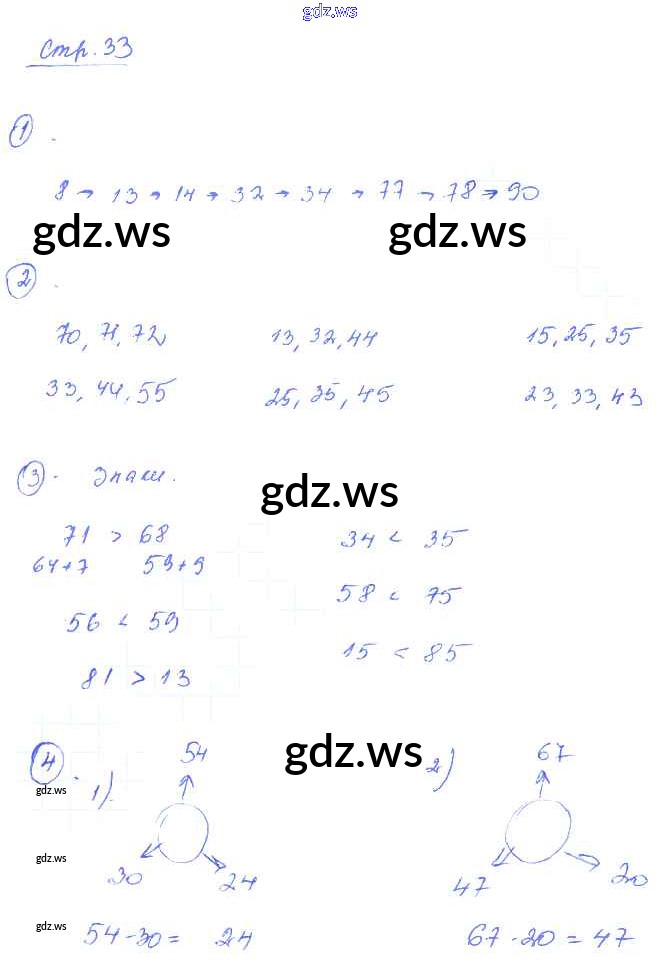 gdz.ws
Стр. 33
1.
8 → 13 → 14 → 32 → 34 → 77 → 78 → 90
gdz.ws gdz.ws
2.
70, 71, 72 13, 32, 44 15, 25, 35
33, 44, 55 25, 35, 45 23, 33, 43
3. Знаки.
gdz.ws
71 > 68 34 < 35
64+7 59+9
58 < 75
56 < 59
15 < 85
81 > 13
4. 1). 54 gdz.ws 2) 67
gdz.ws
gdz.ws
30 24 47 20
gdz.ws
54-30 = 24 67-20 = 47